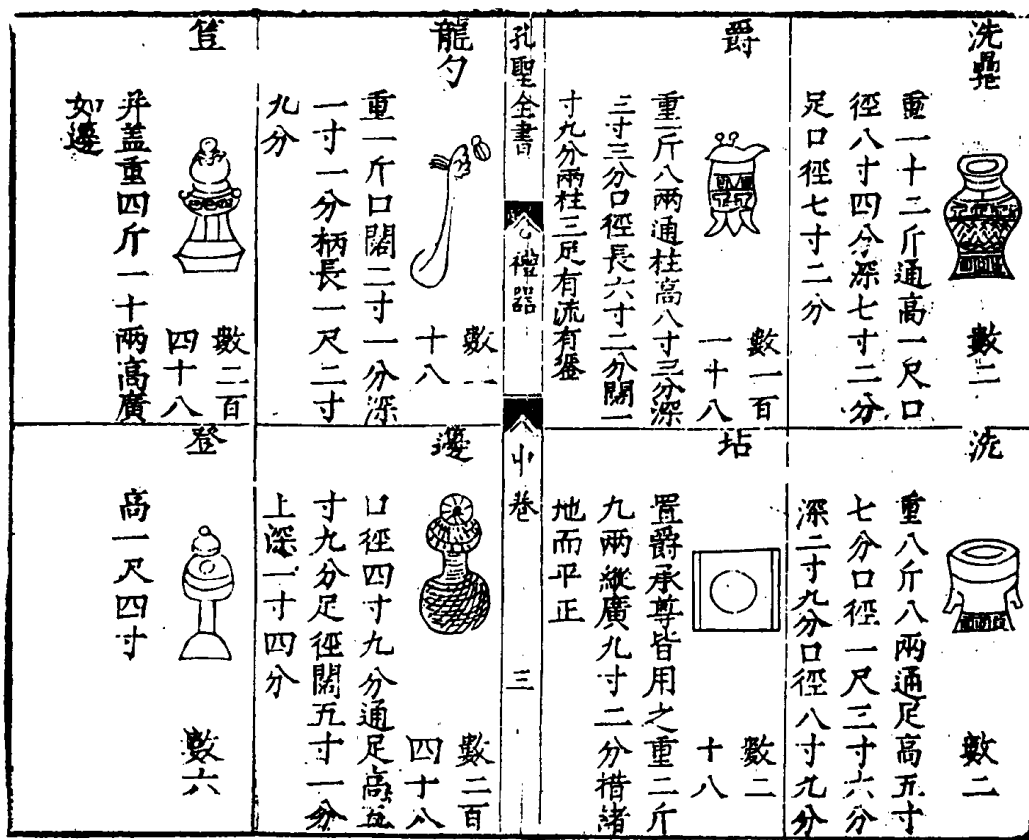 洗罍
重一十二斤通高一尺口
徑八寸四分深七寸二分
足口徑七寸二分
數二
洗
重八斤八兩通足高五寸
七分口徑一尺三寸六分
深二寸九分口徑八寸九分
數二
爵
重一斤八兩通柱高八寸三分深
三寸三分口徑長六寸二分闊二
寸九分兩柱三足有流有鋬
數一百
一十八
坫
置爵承尊皆用之重二斤
九兩縱廣九寸二分措諸
地而平正
數二
十八
孔聖全書
禮器
中卷
三
龍勺
重一斤口闊二寸一分深
一寸一分柄長一尺二寸
九分
數一
十八
籩
口徑四寸九分通足高五
寸九分足徑闊五寸一分
上深一寸四分
數二百
四十八
豆
并蓋重四斤一十兩高廣
如籩
數二百
四十八
登
高一尺四寸
數六